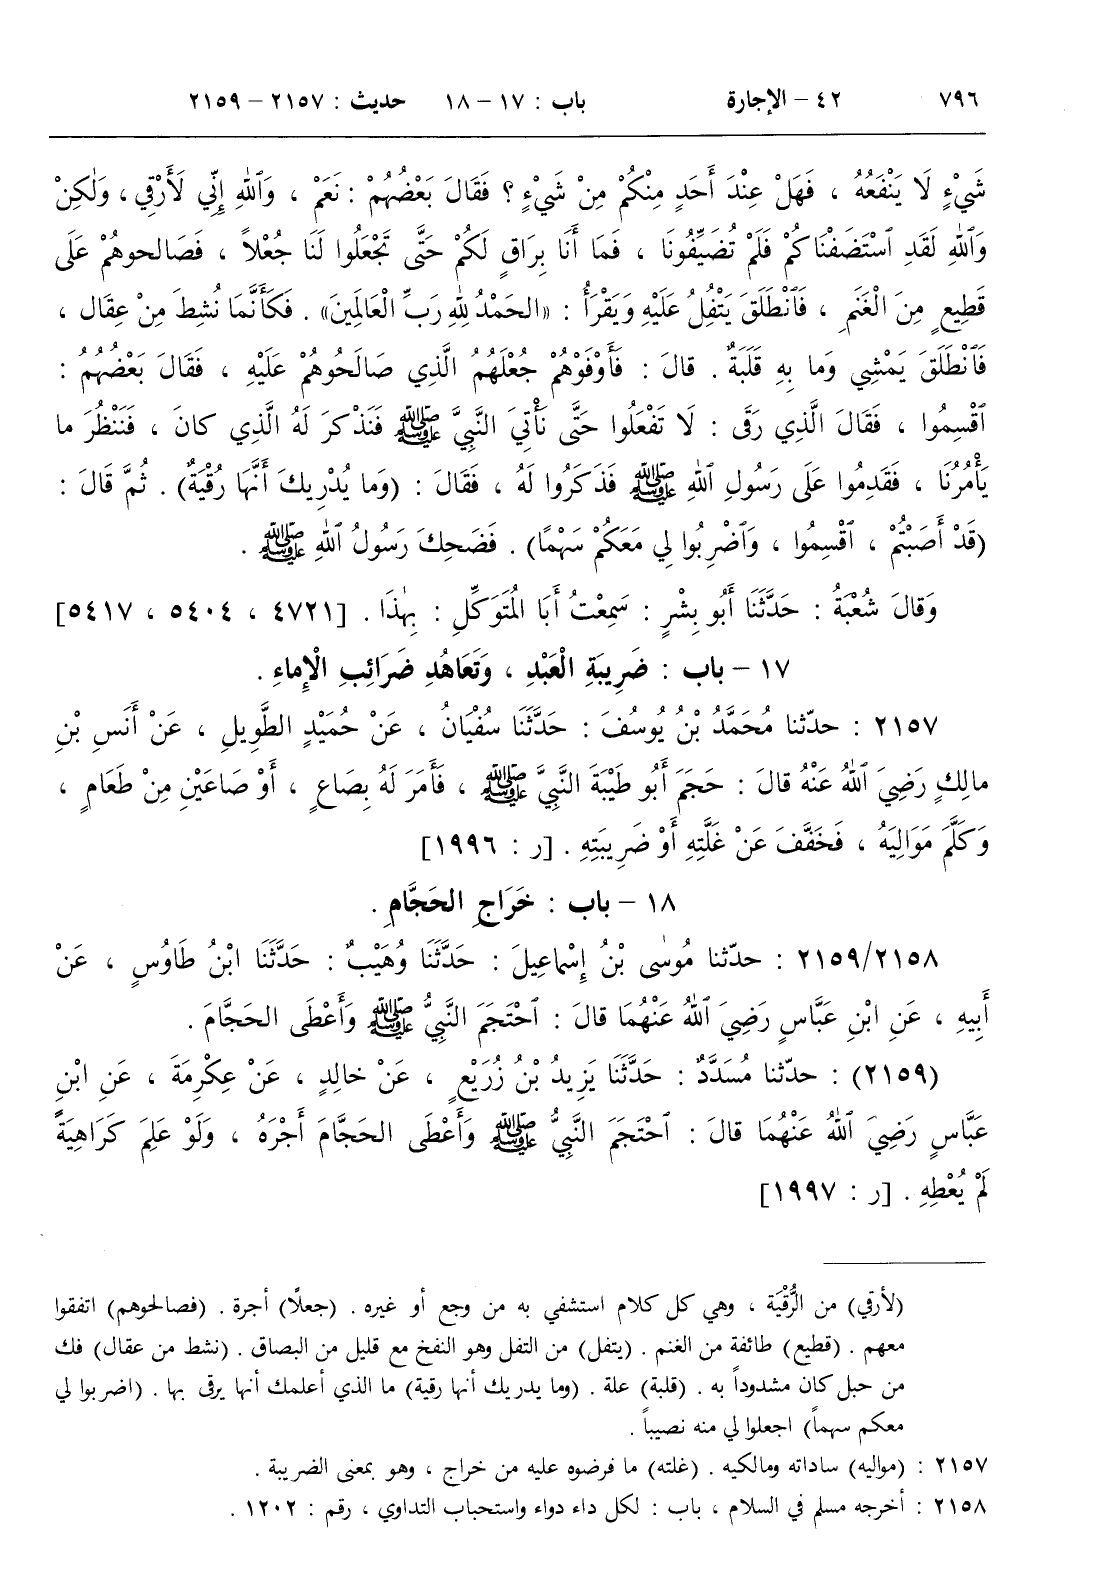 ٧٩٦ ٤٢ – الإجارة باب : ١٧ – ١٨ حديث : ٢١٥٧ – ٢١٥٩
شَيْءٍ لَا يَنْفَعُهُ ، فَهَلْ عِنْدَ أَحَدٍ مِنْكُمْ مِنْ شَيْءٍ ؟ فَقَالَ بَعْضُهُمْ : نَعَمْ ، وَٱللهِ إِنِّي لَأَرْقِي ، وَلٰكِنْ
وَٱللهِ لَقَدِ ٱسْتَضَفْنَاكُمْ فَلَمْ تُضَيِّفُونَا ، فَمَا أَنَا بِرَاقٍ لَكُمْ حَتَّى تَجْعَلُوا لَنَا جُعْلاً ، فَصَالحوهُمْ عَلَى
قَطِيعٍ مِنَ الْغَنَمِ ، فَٱنْطَلَقَ يَتْفِلُ عَلَيْهِ وَيَقْرَأُ : «الحَمْدُ لِلهِ رَبِّ الْعَالَمِينَ» . فَكَأَنَّمَا نُشِطَ مِنْ عِقَال ،
فَٱنْطَلَقَ يَمْشِي وَما بِهِ قَلَبَةٌ . قالَ : فَأَوْفَوْهُمْ جُعْلَهُمُ الَّذِي صَالَحُوهُمْ عَلَيْهِ ، فَقَالَ بَعْضُهُمُ :
ٱقْسِمُوا ، فَقَالَ الَّذِي رَقَى : لَا تَفْعَلُوا حَتَّى نَأْتِيَ النَّبِيَّ ﷺ فَنَذْكرَ لَهُ الَّذِي كانَ ، فَنَنْظُرَ ما
يَأْمُرُنَا ، فَقَدِمُوا عَلَى رَسُولِ ٱللهِ ﷺ فَذَكَرُوا لَهُ ، فَقَالَ : (وَما يُدْرِيكَ أَنَّهَا رُقْيَةٌ) . ثُمَّ قَالَ :
(قَدْ أَصَبْتُمْ ، ٱقْسِمُوا ، وَٱضْرِبُوا لِي مَعَكُمْ سَهْمًا) . فَضَحِكَ رَسُولُ ٱللهِ ﷺ .
وَقالَ شُعْبَةُ : حَدَّثَنَا أَبُو بِشْرٍ : سَمِعْتُ أَبَا المُتَوَكِّلِ : بِهٰذَا . [٤٧٢١ ، ٥٤٠٤ ، ٥٤١٧]
١٧ – باب : ضَرِيبَةِ الْعَبْدِ ، وَتَعَاهُدِ ضَرَائِبِ الْإِماءِ .
٢١٥٧ : حدّثنا مُحَمَّدُ بْنُ يُوسُفَ : حَدَّثَنَا سُفْيَانُ ، عَنْ حُمَيْدٍ الطَّوِيلِ ، عَنْ أَنَسِ بْنِ
مالِكٍ رَضِيَ ٱللهُ عَنْهُ قالَ : حَجَمَ أَبُو طَيْبَةَ النَّبِيَّ ﷺ ، فَأَمَرَ لَهُ بِصَاعٍ ، أَوْ صَاعَيْنِ مِنْ طَعَامٍ ،
وَكَلَّمَ مَوَالِيَهُ ، فَخَفَّفَ عَنْ غَلَّتِهِ أَوْ ضَرِيبَتِهِ . [ر : ١٩٩٦]
١٨ – باب : خَرَاجِ الحَجَّامِ .
٢١٥٩/٢١٥٨ : حدّثنا مُوسٰى بْنُ إِسْماعِيلَ : حَدَّثَنَا وُهَيْبٌ : حَدَّثَنَا ابْنُ طَاوُسٍ ، عَنْ
أَبِيهِ ، عَنِ ابْنِ عَبَّاسٍ رَضِيَ ٱللهُ عَنْهُمَا قالَ : ٱحْتَجَمَ النَّبِيُّ ﷺ وَأَعْطَى الحَجَّامَ .
(٢١٥٩) : حدّثنا مُسَدَّدٌ : حَدَّثَنَا يَزِيدُ بْنُ زُرَيْعٍ ، عَنْ خالِدٍ ، عَنْ عِكْرِمَةَ ، عَنِ ابْنِ
عَبَّاسٍ رَضِيَ ٱللهُ عَنْهُمَا قالَ : ٱحْتَجَمَ النَّبِيُّ ﷺ وَأَعْطَى الحَجَّامَ أَجْرَهُ ، وَلَوْ عَلِمَ كَرَاهِيَةً
لَمْ يُعْطِهِ . [ر : ١٩٩٧]
(لأرقي) من الرُّقْيَة ، وهي كل كلام استشفي به من وجع أو غيره . (جعلًا) أجرة . (فصالحوهم) اتفقوا
معهم . (قطيع) طائفة من الغنم . (يتفل) من التفل وهو النفخ مع قليل من البصاق . (نشط من عقال) فك
من حبل كان مشدوداً به . (قلبة) علة . (وما يدريك أنها رقية) ما الذي أعلمك أنها يرقى بها . (اضربوا لي
معكم سهماً) اجعلوا لي منه نصيباً .
٢١٥٧ : (مواليه) ساداته ومالكيه . (غلته) ما فرضوه عليه من خراج ، وهو بمعنى الضريبة .
٢١٥٨ : أخرجه مسلم في السلام ، باب : لكل داء دواء واستحباب التداوي ، رقم : ١٢٠٢ .